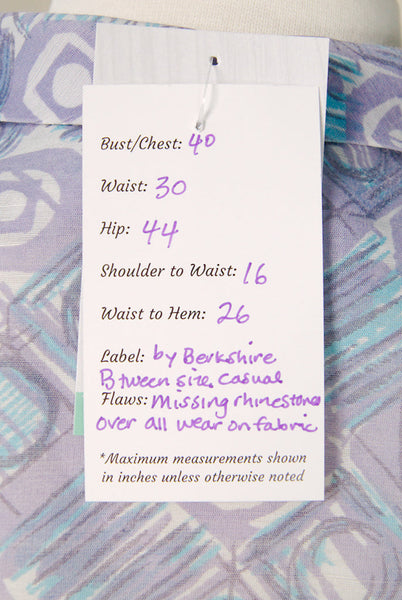 Bust/Chest: 40
Waist: 30
Hip: 44
Shoulder to Waist: 16
Waist to Hem: 26
Label: by Berkshire
Btween size casual
Flaws: Missing rhinestones
over all wear on fabric
*Maximum measurements shown
in inches unless otherwise noted